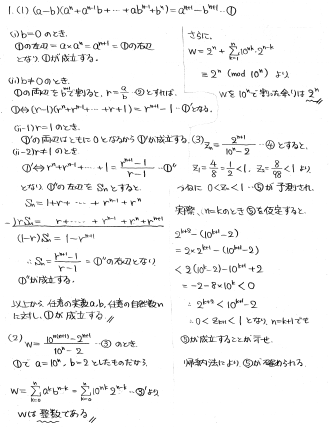 1. (1) (a-b)(aⁿ+aⁿ⁻¹b+…+abⁿ⁻¹+bⁿ)=aⁿ⁺¹-bⁿ⁺¹…①
(i) b=0 のとき
①の左辺=a×aⁿ=aⁿ⁺¹=①の右辺
となり、①が成立する。
(ii) b≠0 のとき
①の両辺をbⁿ⁺¹で割ると、r=a/b…②とすれば、
①⇔(r-1)(rⁿ+rⁿ⁻¹+…+r+1)=rⁿ⁺¹-1…①'となる。
(ii-1) r=1 のとき
①'の両辺はともに0となるから①'が成立する。
(ii-2) r≠1 のとき
①'⇔rⁿ+rⁿ⁻¹+…+1=(rⁿ⁺¹-1)/(r-1)…①''
となり、①''の左辺をSₙとすると、
Sₙ=1+r+…+rⁿ⁻¹+rⁿ
-) rSₙ= r+…+rⁿ⁻¹+rⁿ+rⁿ⁺¹
(1-r)Sₙ=1-rⁿ⁺¹
∴Sₙ=(rⁿ⁺¹-1)/(r-1)=①''の右辺となり
①''が成立する。
以上から、任意の実数a,b、任意の自然数n
に対し、①が成立する
(2) W=(10ⁿ⁽ⁿ⁺¹⁾-2ⁿ⁺¹)/(10ⁿ-2)…③ のとき
①で a=10ⁿ, b=2としたものだから、
W=Σₖ₌₀ⁿ aᵏbⁿ⁻ᵏ=Σₖ₌₀ⁿ 10ⁿᵏ2ⁿ⁻ᵏ…③'より
Wは整数である
さらに、
W=2ⁿ+Σₖ₌₁ⁿ 10ⁿᵏ・2ⁿ⁻ᵏ
≡2ⁿ (mod 10ⁿ) より
Wを10ⁿで割った余りは2ⁿ
(3) Zₙ=2ⁿ⁺¹/(10ⁿ-2)…④とすると、
Z₁=4/8=1/2<1, Z₂=8/98<1 より
つねに 0<Zₙ<1…⑤が予測され、
実際、n=kのとき⑤を仮定すると
2ᵏ⁺²-(10ᵏ⁺¹-2)
=2×2ᵏ⁺¹-(10ᵏ⁺¹-2)
<2(10ᵏ-2)-10ᵏ⁺¹+2
=-2-8×10ᵏ<0
∴2ᵏ⁺²<10ᵏ⁺¹-2
∴0<Zₖ₊₁<1となり、n=k+1でも
⑤が成立することが示せ、
帰納法により⑤が確められる